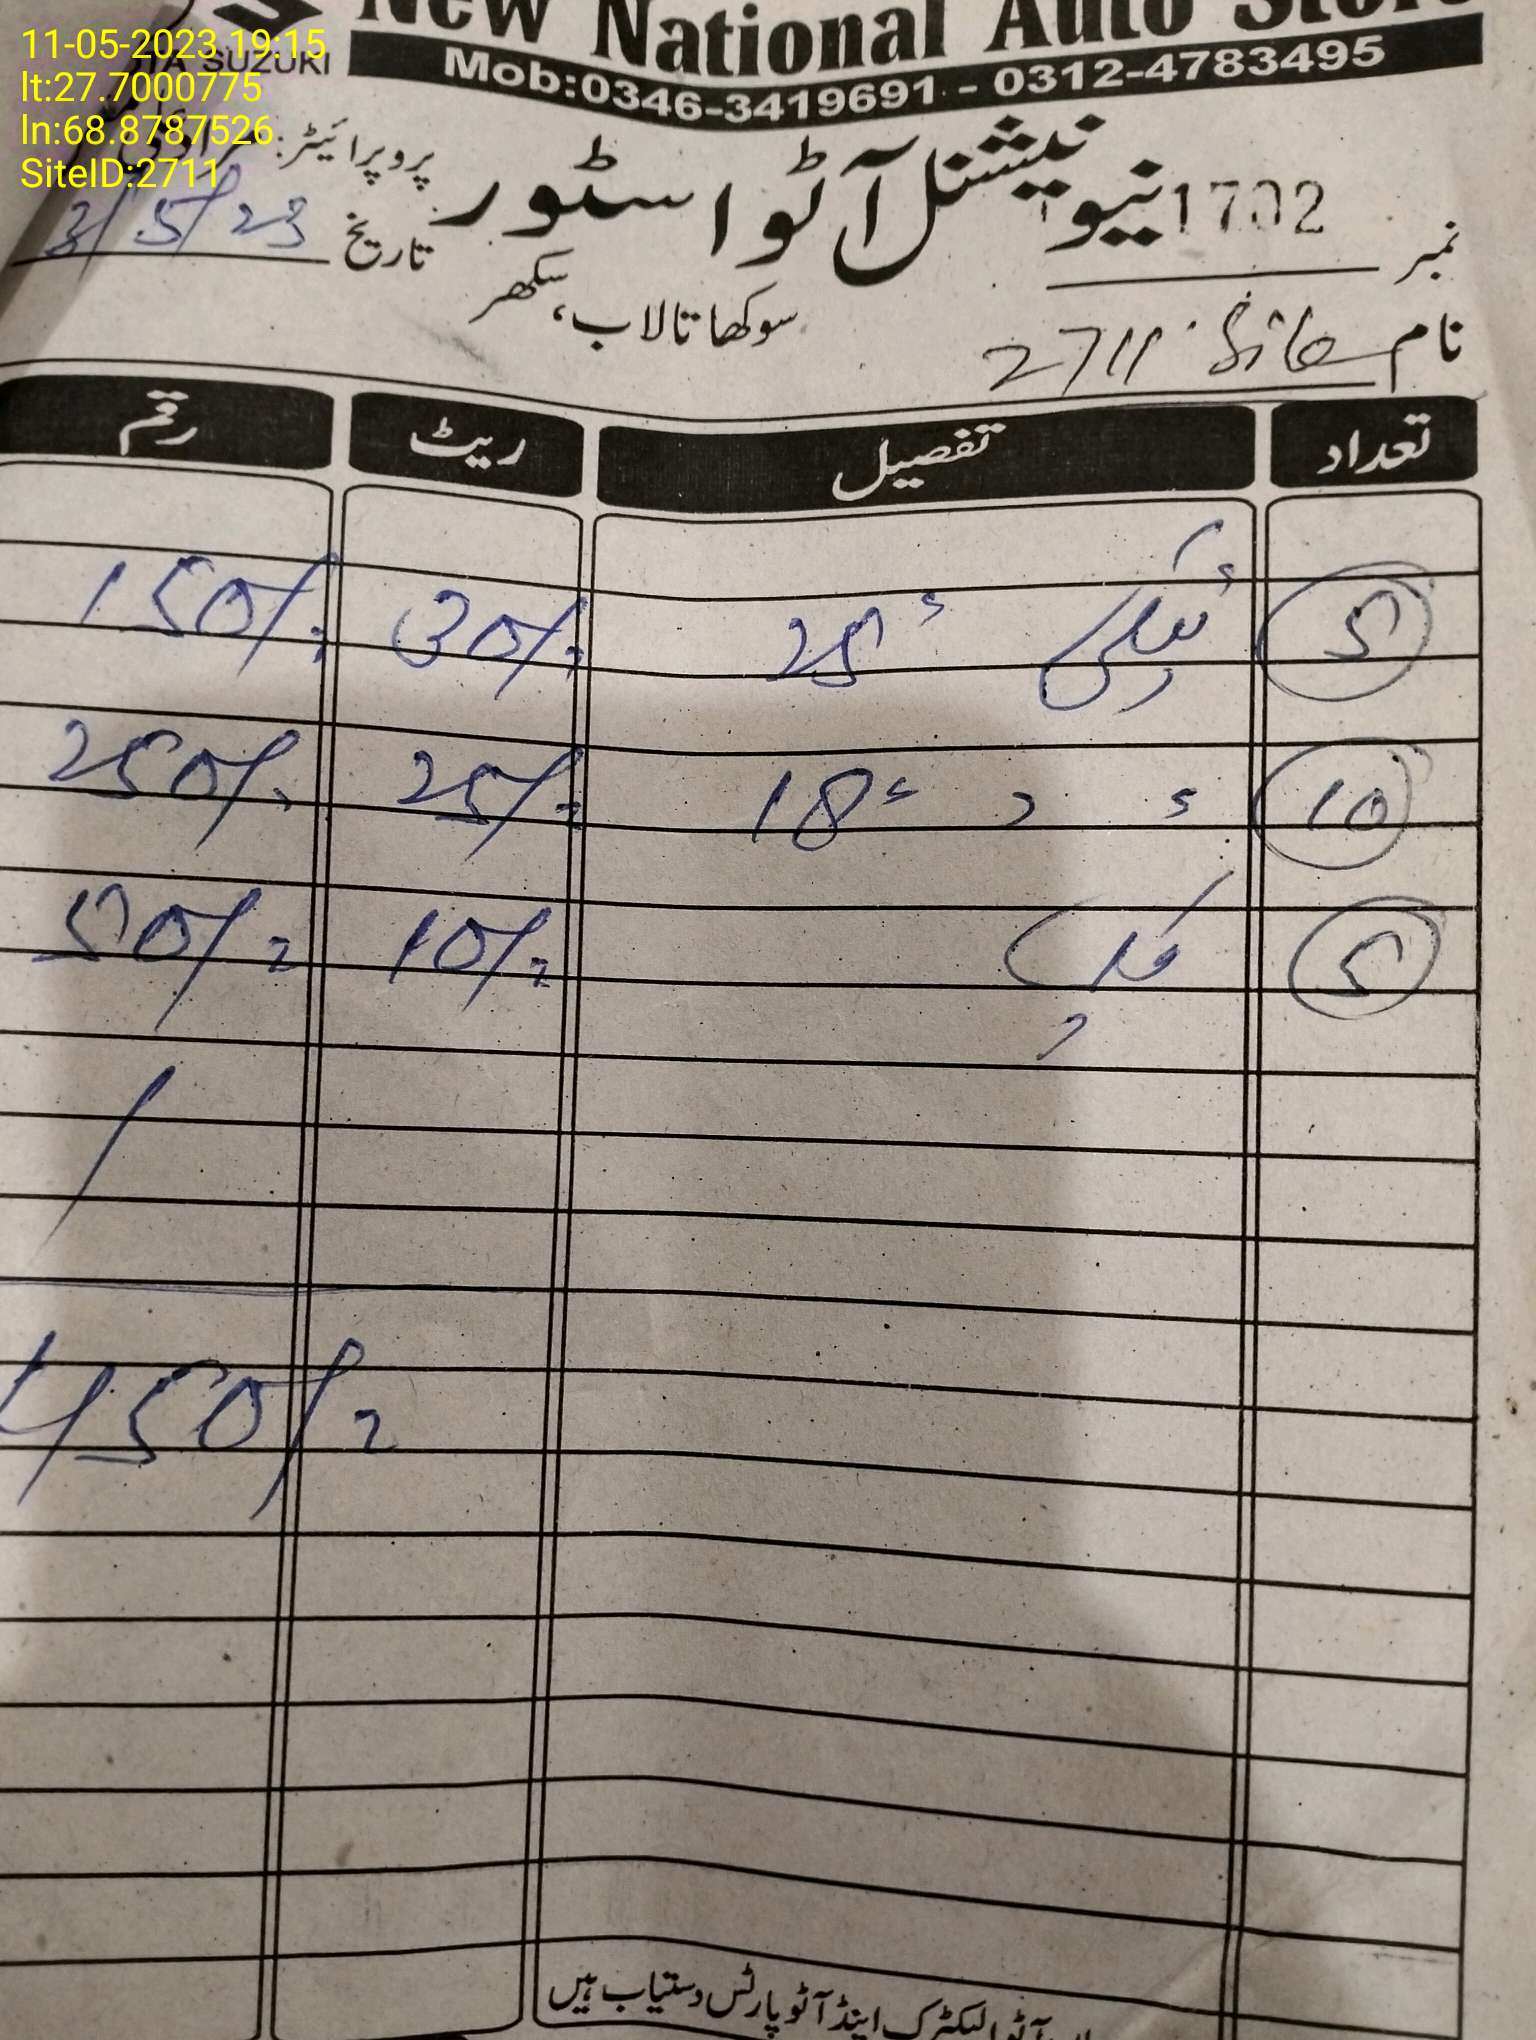 New National Auto Store
11-05-2023 19:15
SUZUKI
Mob:0346-3419691 - 0312-4783495
lt:27.7000775
ln:68.8787526
پروپرائیٹر:
SiteID:2711
نیو نیشنل آٹو اسٹور
نمبر 1702
تاریخ 3/5/23
سوکھا تالاب، سکھر
نام 2711 Site
تعداد تفصیل ریٹ رقم
5 25 30/= 150/=
10 18 25/= 250/=
5 10/= 50/=
450/=
آٹو الیکٹرک اینڈ آٹو پارٹس دستیاب ہیں